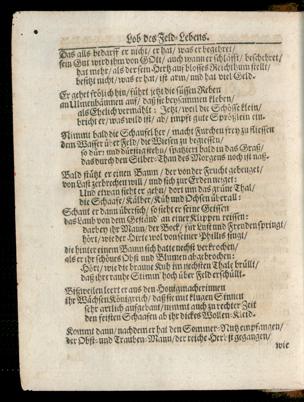 Lob des Feld-Lebens.
Das alls bedarff er nicht / er hat / was er begehret /
sein Gut wird ihm von GOtt / auch wann er schläfft / beschehret /
hat mehr / als der sein Hertz auf blosses Reichthum stellt /
besitzt nicht / was er hat / ist arm / und hat viel Geld.
Er gehet frölich hin / führt jetzt die süssen Reben
an Ulmenbäumen auf / daß sie beysammen kleben /
als Ehelich vermählt: Jetzt / weil die Schößlein
bricht er / was wild ist / ab / impft gute Sprößlein ein.
Nimmt bald die Schaufel her / macht Furchen frey zu fliessen
dem Wasser über Feld / die Wiesen zu begiessen /
so dürr und dürstig / spatziert bald in das Graß /
das durch den Silber-Thau des Morgens noch ist naß.
Bald stützt er einen Baum / der von der Frucht gebeuget /
von Last zerbrechen will / und sich zur Erden neiget:
Und etwan sieht er gehn / dort um das grüne Thal /
die Schaafe / Kälber / Küh und Ochsen überall:
Schaut er dann über sich / so sieht er seine Geissen
das Laub von dem Gestäud an einer Klippen reissen:
darbey ihr Mann / der Bock / für Lust und Freuden springt /
hört / wie der Hirt wol von seiner Phillis singt /
die hinter einem Baum sich hatte nechst verkrochen /
als er ihr schönes Obst und Blumen abgebrochen:
Hört / wie die braune Kuh im nechsten Thale brüllt /
daß ihr rauhe Stimm hoch über Feld erschüllt.
Bißweilen leert er aus den Honigmacherinnen
ihr Wächsen Königreich / daß sie mit klugen Sinnen
sehr artlich aufgebaut / nimmt auch zu rechter Zeit
den feisten Schaafen ab ihr dickes Wollen-Kleid.
Kommt dann / nachdem er hat den Sommer-Nutz empfangen /
der Obst- und Trauben-Mann / der reiche Herbst gegangen /
wie